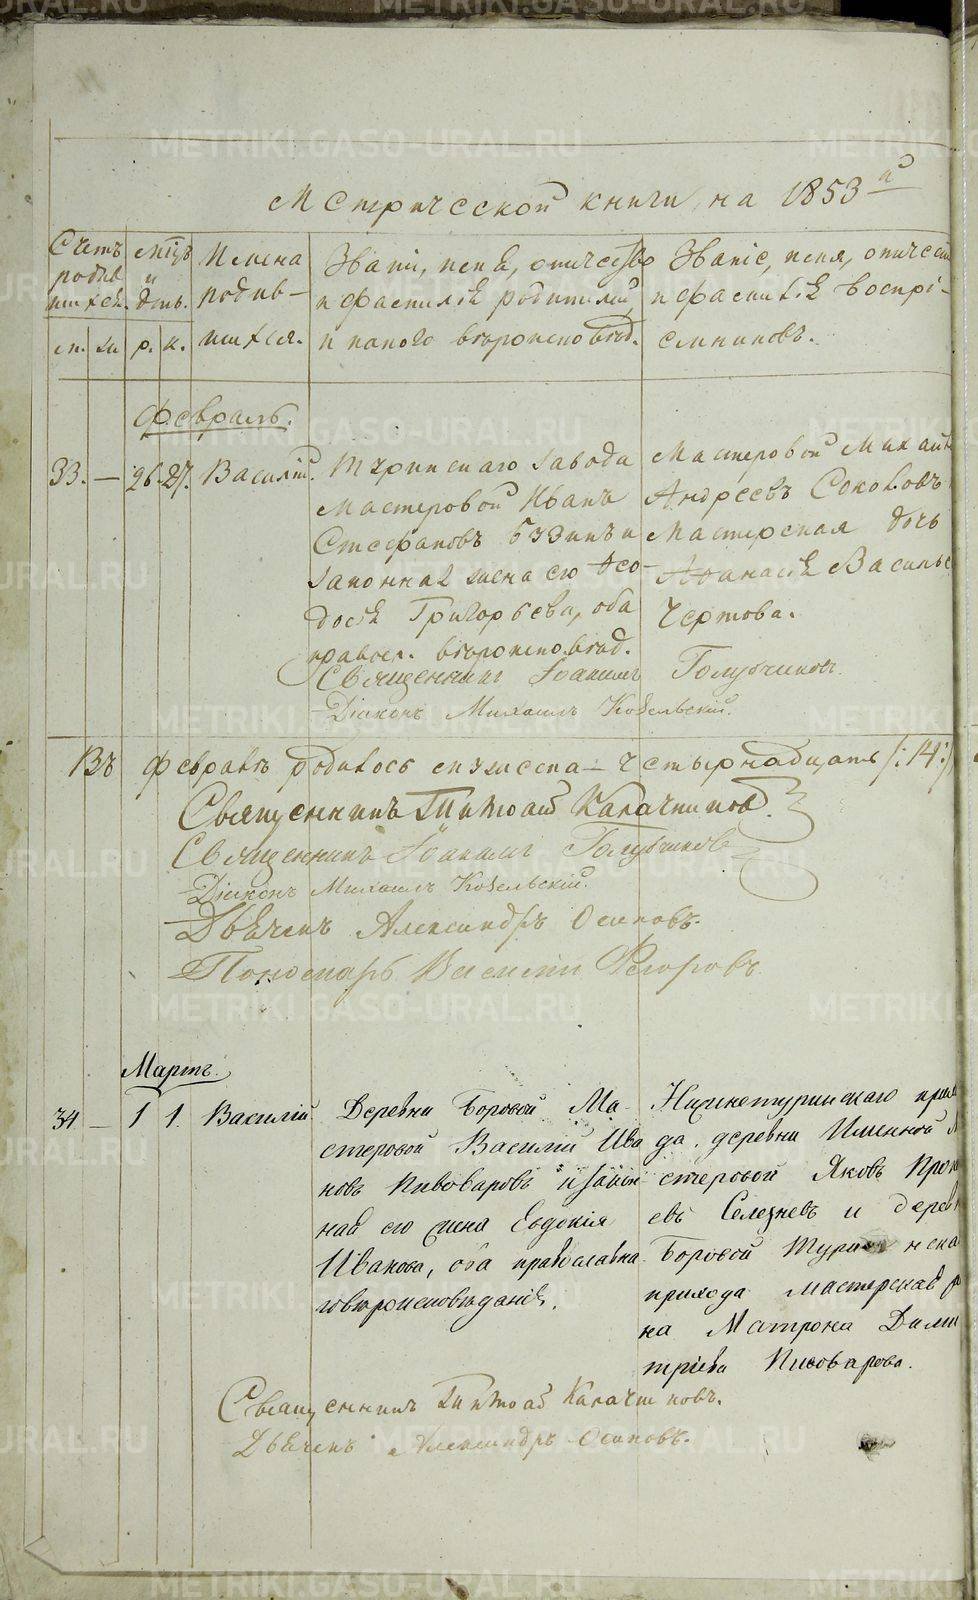 METRIKI.GASO-URAL.RU
Метрической книги, на 1853й
Счетъ родив шихся.
мцъ и день.
Имена родив– шихся.
Званіе, имя, отчество
и фамилія родителей
и какого вѣроисповѣд.
Званіе, имя, отчест
и фамилія воспрі–
емниковъ.
м. ж.
р. к.
Февраль.
33. — 26. 27. Василій.
Туринскаго завода
мастеровой Иванъ
Стефановъ и
законная жена его Ѳео–
досія Григорьева, оба
правосл. вѣроисповѣд.
Мастеровой Михаил
Андреевъ Соколовъ
мастерская дочь
Аѳанасія Василье
Чертова.
Священникъ Іоакимъ Голубчиковъ
Діаконъ Михаилъ Козельскій.
Въ Февралѣ родилось мужеска – четырнадцать /:14:/
Священникъ Тимоѳей Калачниковъ.
Священникъ Іоакимъ Голубчиковъ
Діаконъ Михаилъ Козельскій.
Дьячекъ Александръ Осиповъ.
Пономарь Василій Ѳедоровъ
Мартъ.
34 — 1 1. Василій
Деревни Боровой Ма–
стеровой Василій Ива
новъ Пивоваровъ и закон
ная его жена Евдокія
Иванова, оба православна
го вѣроисповѣданія.
Нижнетуринскаго прих
да, деревни Именной М
стеровой Яковъ Прок
евъ Селезневъ и дерев
Боровой Туринска
прихода мастерская
на Матрона Дими
тріева Пивоварова.
Священникъ Тимоѳей Калачниковъ.
Дьячекъ Александръ Осиповъ.